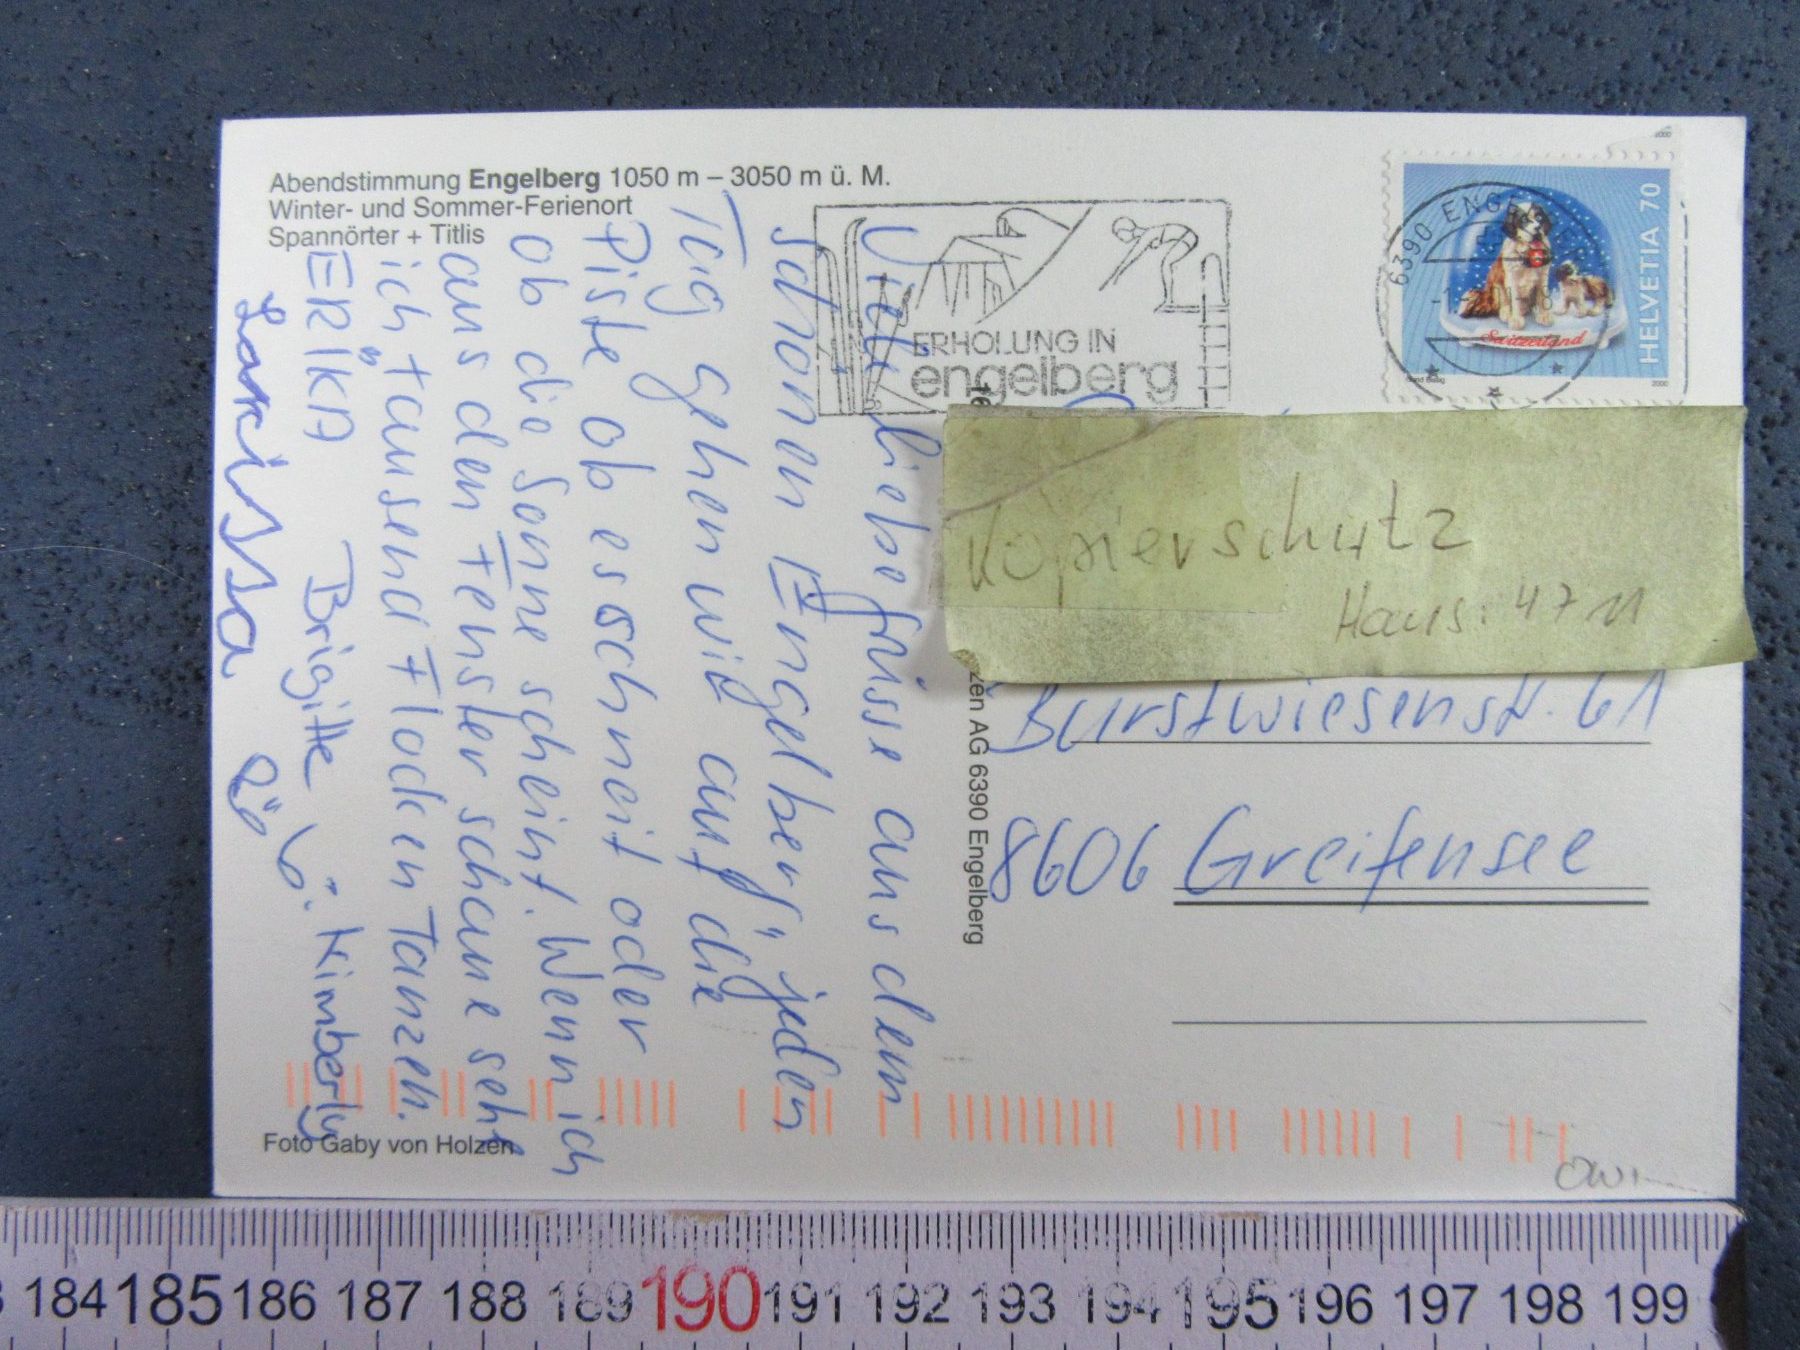 Abendstimmung Engelberg 1050 m – 3050 m ü. M.
Winter- und Sommer-Ferienort
Spannörter + Titlis
HELVETIA 70
Switzerland
2000
6390 ENGE
ERHOLUNG IN
engelberg
Kopierschutz
Haus: 4711
Burstwiesenstr. 61
8606 Greifensee
zen AG 6390 Engelberg
Viele liebe grüsse aus dem
schönen Engelberg" jeden
Tag gehen wir auf die
Piste ob es schneit oder
ob die Sonne scheint. Wenn ich
aus den Fenster schaue seht
ich tausend Flocken Tanzen.
ERIKA Brigitte Kimberly
Larissa
Foto Gaby von Holzen
184 185 186 187 188 189 190 191 192 193 194 195 196 197 198 199